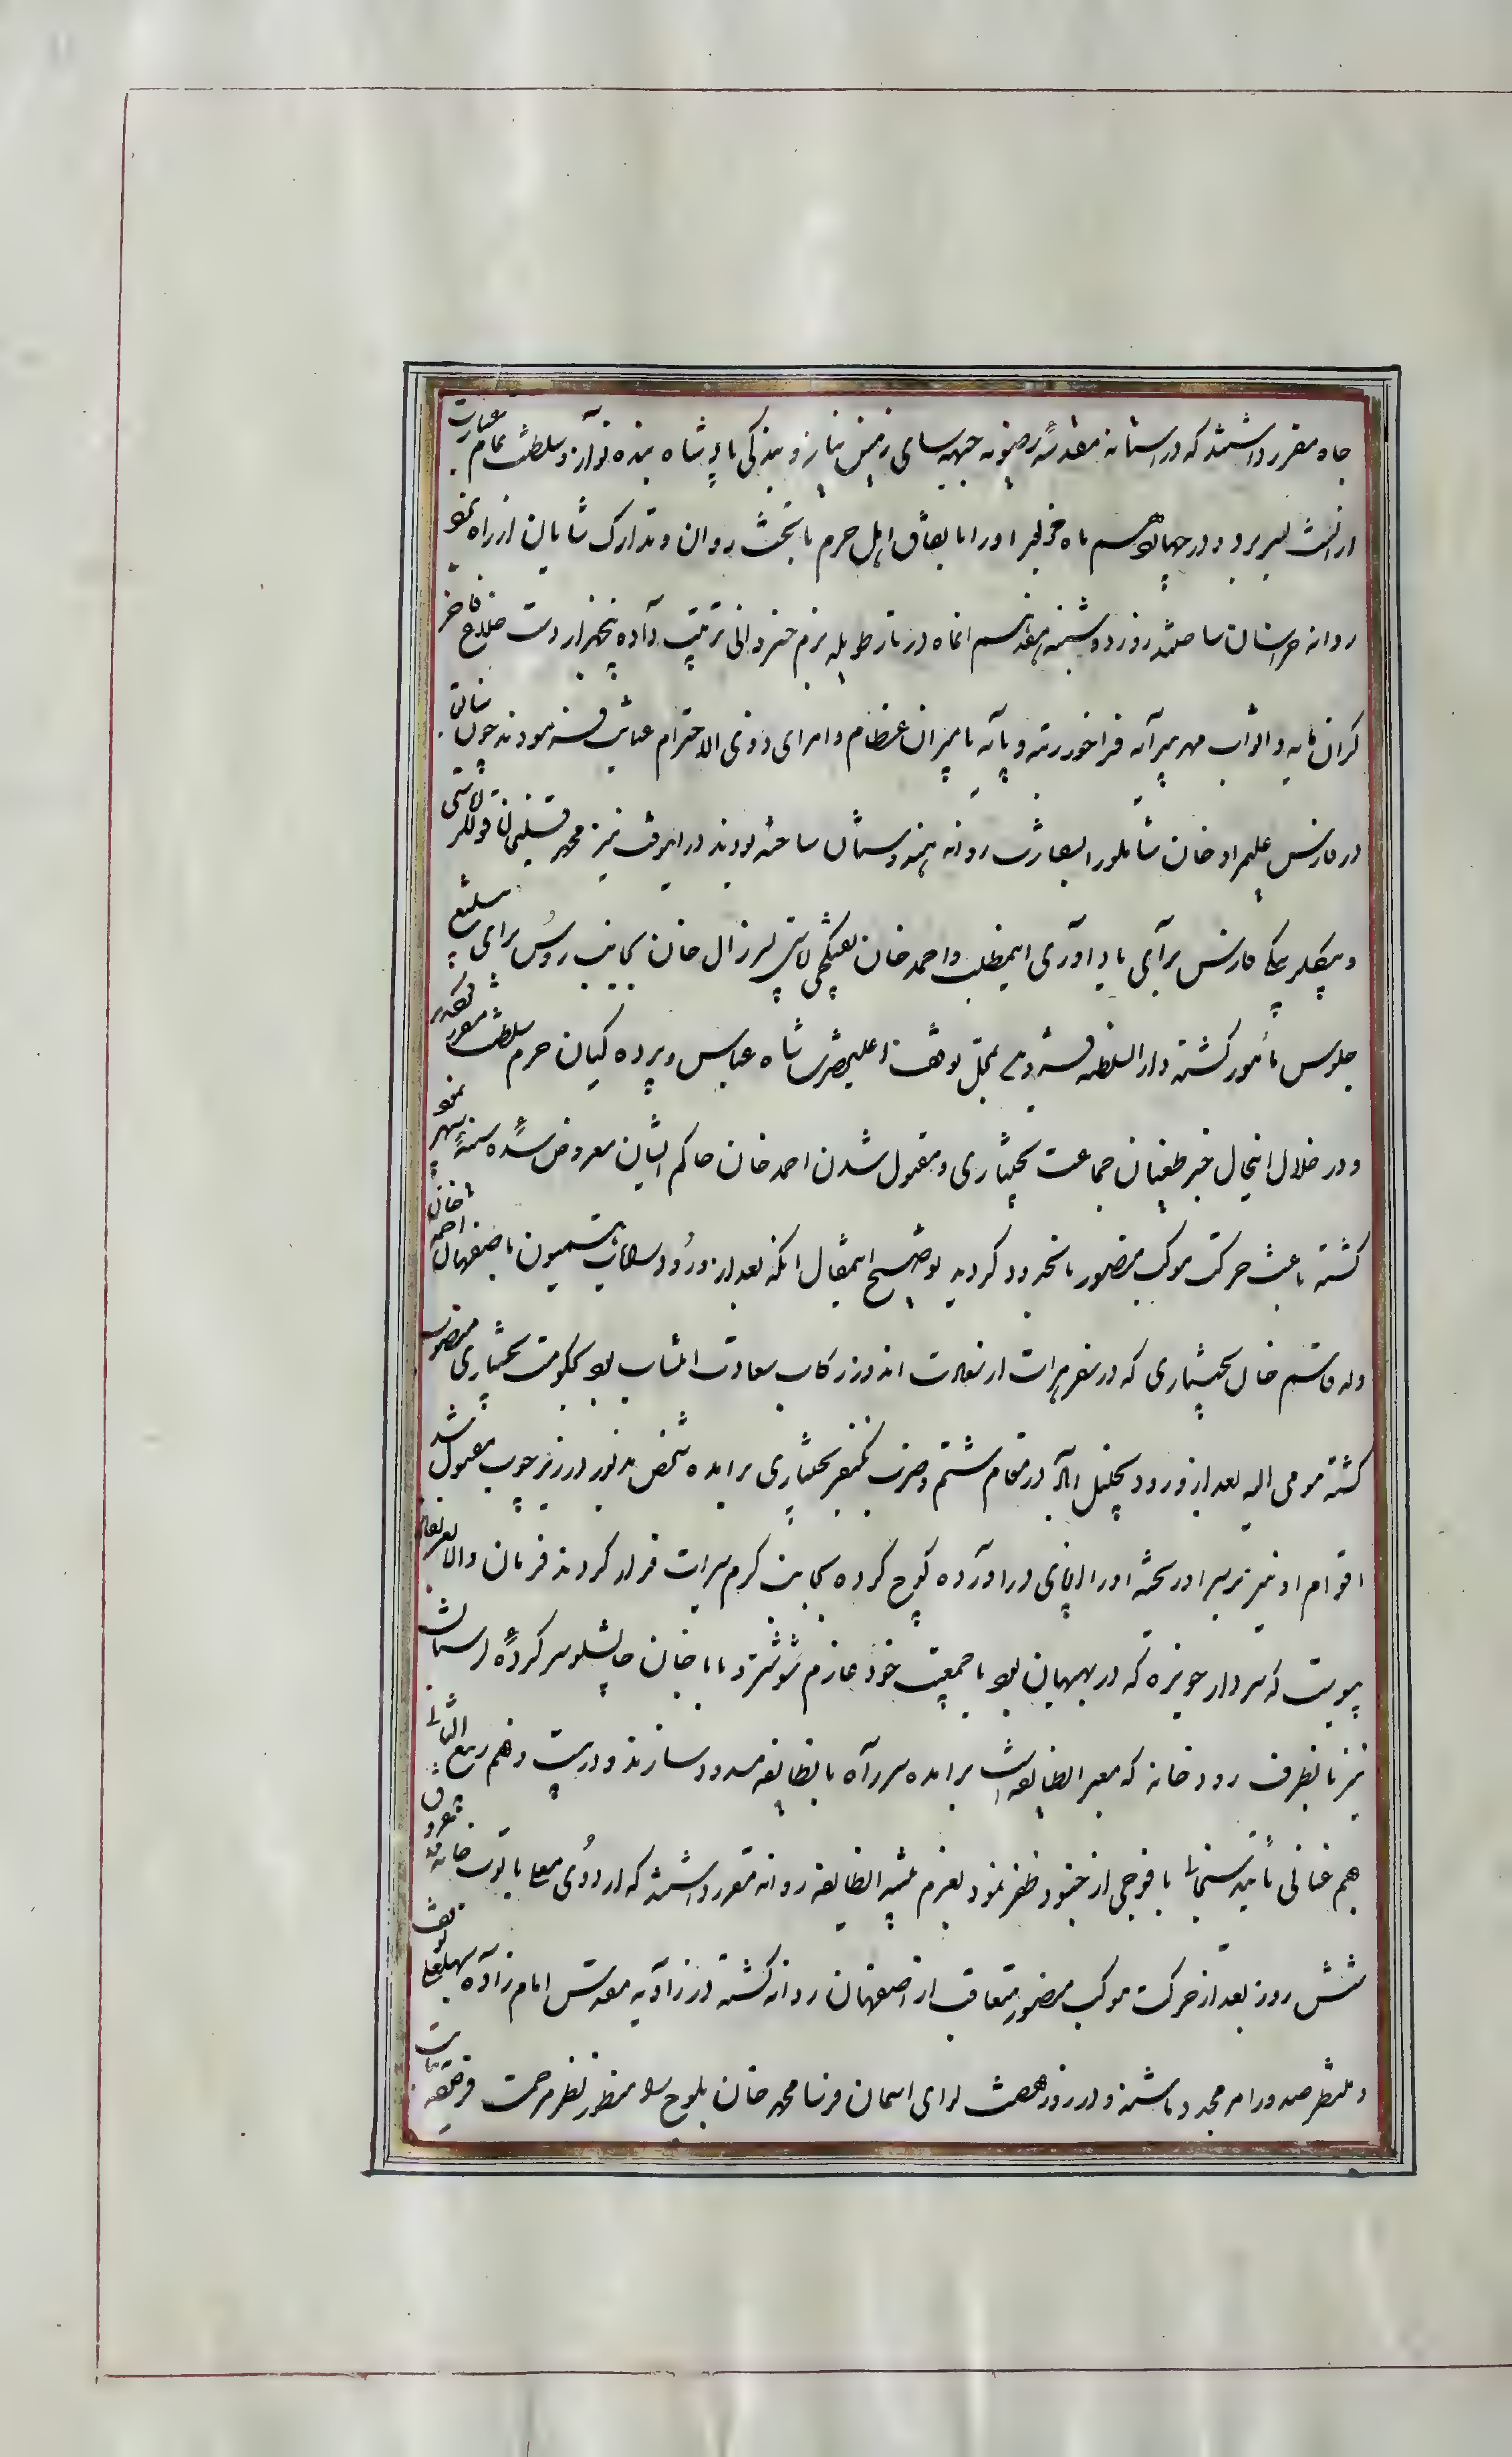 جاه مقرر داشتند که در آستانه مقدسه رضویه جبهه سای زمین نیاز و بندگی پادشاه بنده نواز و سلطنت تمام عبارت
از انست بسر برد و در چهاردهم ماه مزبور او را با تفاق اهل حرم با تخت روان و تدارک شایان از راه
روانه خراسان ساختند روز دوشنبه هفدهم انماه در تالار طویله بزم خسروانی ترتیب داده پنجهزار دست خلاع فاخر
گران مایه و اثواب مهر پیرایه فراخور رتبه و پایه بامیران عظام و امرای ذوی الاحترام عنایت فرمودند چون سابق
در فارس علیمراد خان شاملو را بسفارت روانه هندوستان ساخته بودند در اینوقت نیز محمد علیخان قوللر اقاسی
و بیگلر بیگی فارس برای یاد آوری اینمطلب و احمد خان تفنگچی باشی پسر زال خان بجانب روس برای تبلیغ
جلوس مأمور گشته دار السلطنه قزوین محل توقف اعلیحضرت شاه عباس و پرده گیان حرم سلطنت مقرر
و در خلال اینحال خبر طغیان جماعت بختیاری و مقتول شدن احمد خان حاکم ایشان معروض سده سنیه سپهر
گشته باعث حرکت موکب منصور با نحدود گردید توضیح اینمقال انکه بعد از ورود رایات میمون باصفهان احمد خان
ولد قاسم خان بختیاری که در سفر هرات از سعادت اندوزان رکاب سعادت انتساب بود بحکومت بختیاری منصوب
گشته مومی الیه بعد از ورود بمحل در مقام شتم و ضرب یکنفر بختیاری برامده شخص مذبور در زیر چوب مقتول شد
اقوام او نیز بر سر او ریخته او را از پای در اورده کوچ کرده بجانب گرم سیرات فرار کردند فرمان والا
پیوست که سردار حویزه که در بهبهان بود با جمعیت خود عازم شوشتر و بابا خان چاپشلو سرکرده لرستان
نیز بانطرف رودخانه که معبر انطایفه است برامده سر راه بانطایفه مسدود سازند و در بیست و هم ربیع الثانی
هم عنانی تأیید سبحانی با فوجی از جنود ظفر نمود بعزم تنبیه انطایفه روانه مقرر داشتند که اردوی معلی با توپخانه
شش روز بعد از حرکت موکب منصور متعاقب از اصفهان روانه گشته در زاویه مقدس امام زاده سهلعلی توقف
و منتظر صدور امر مجدد باشند و در روز نهضت لوای اسمان فرسا محمد خان بلوچ بمنظور نظر مرحمت